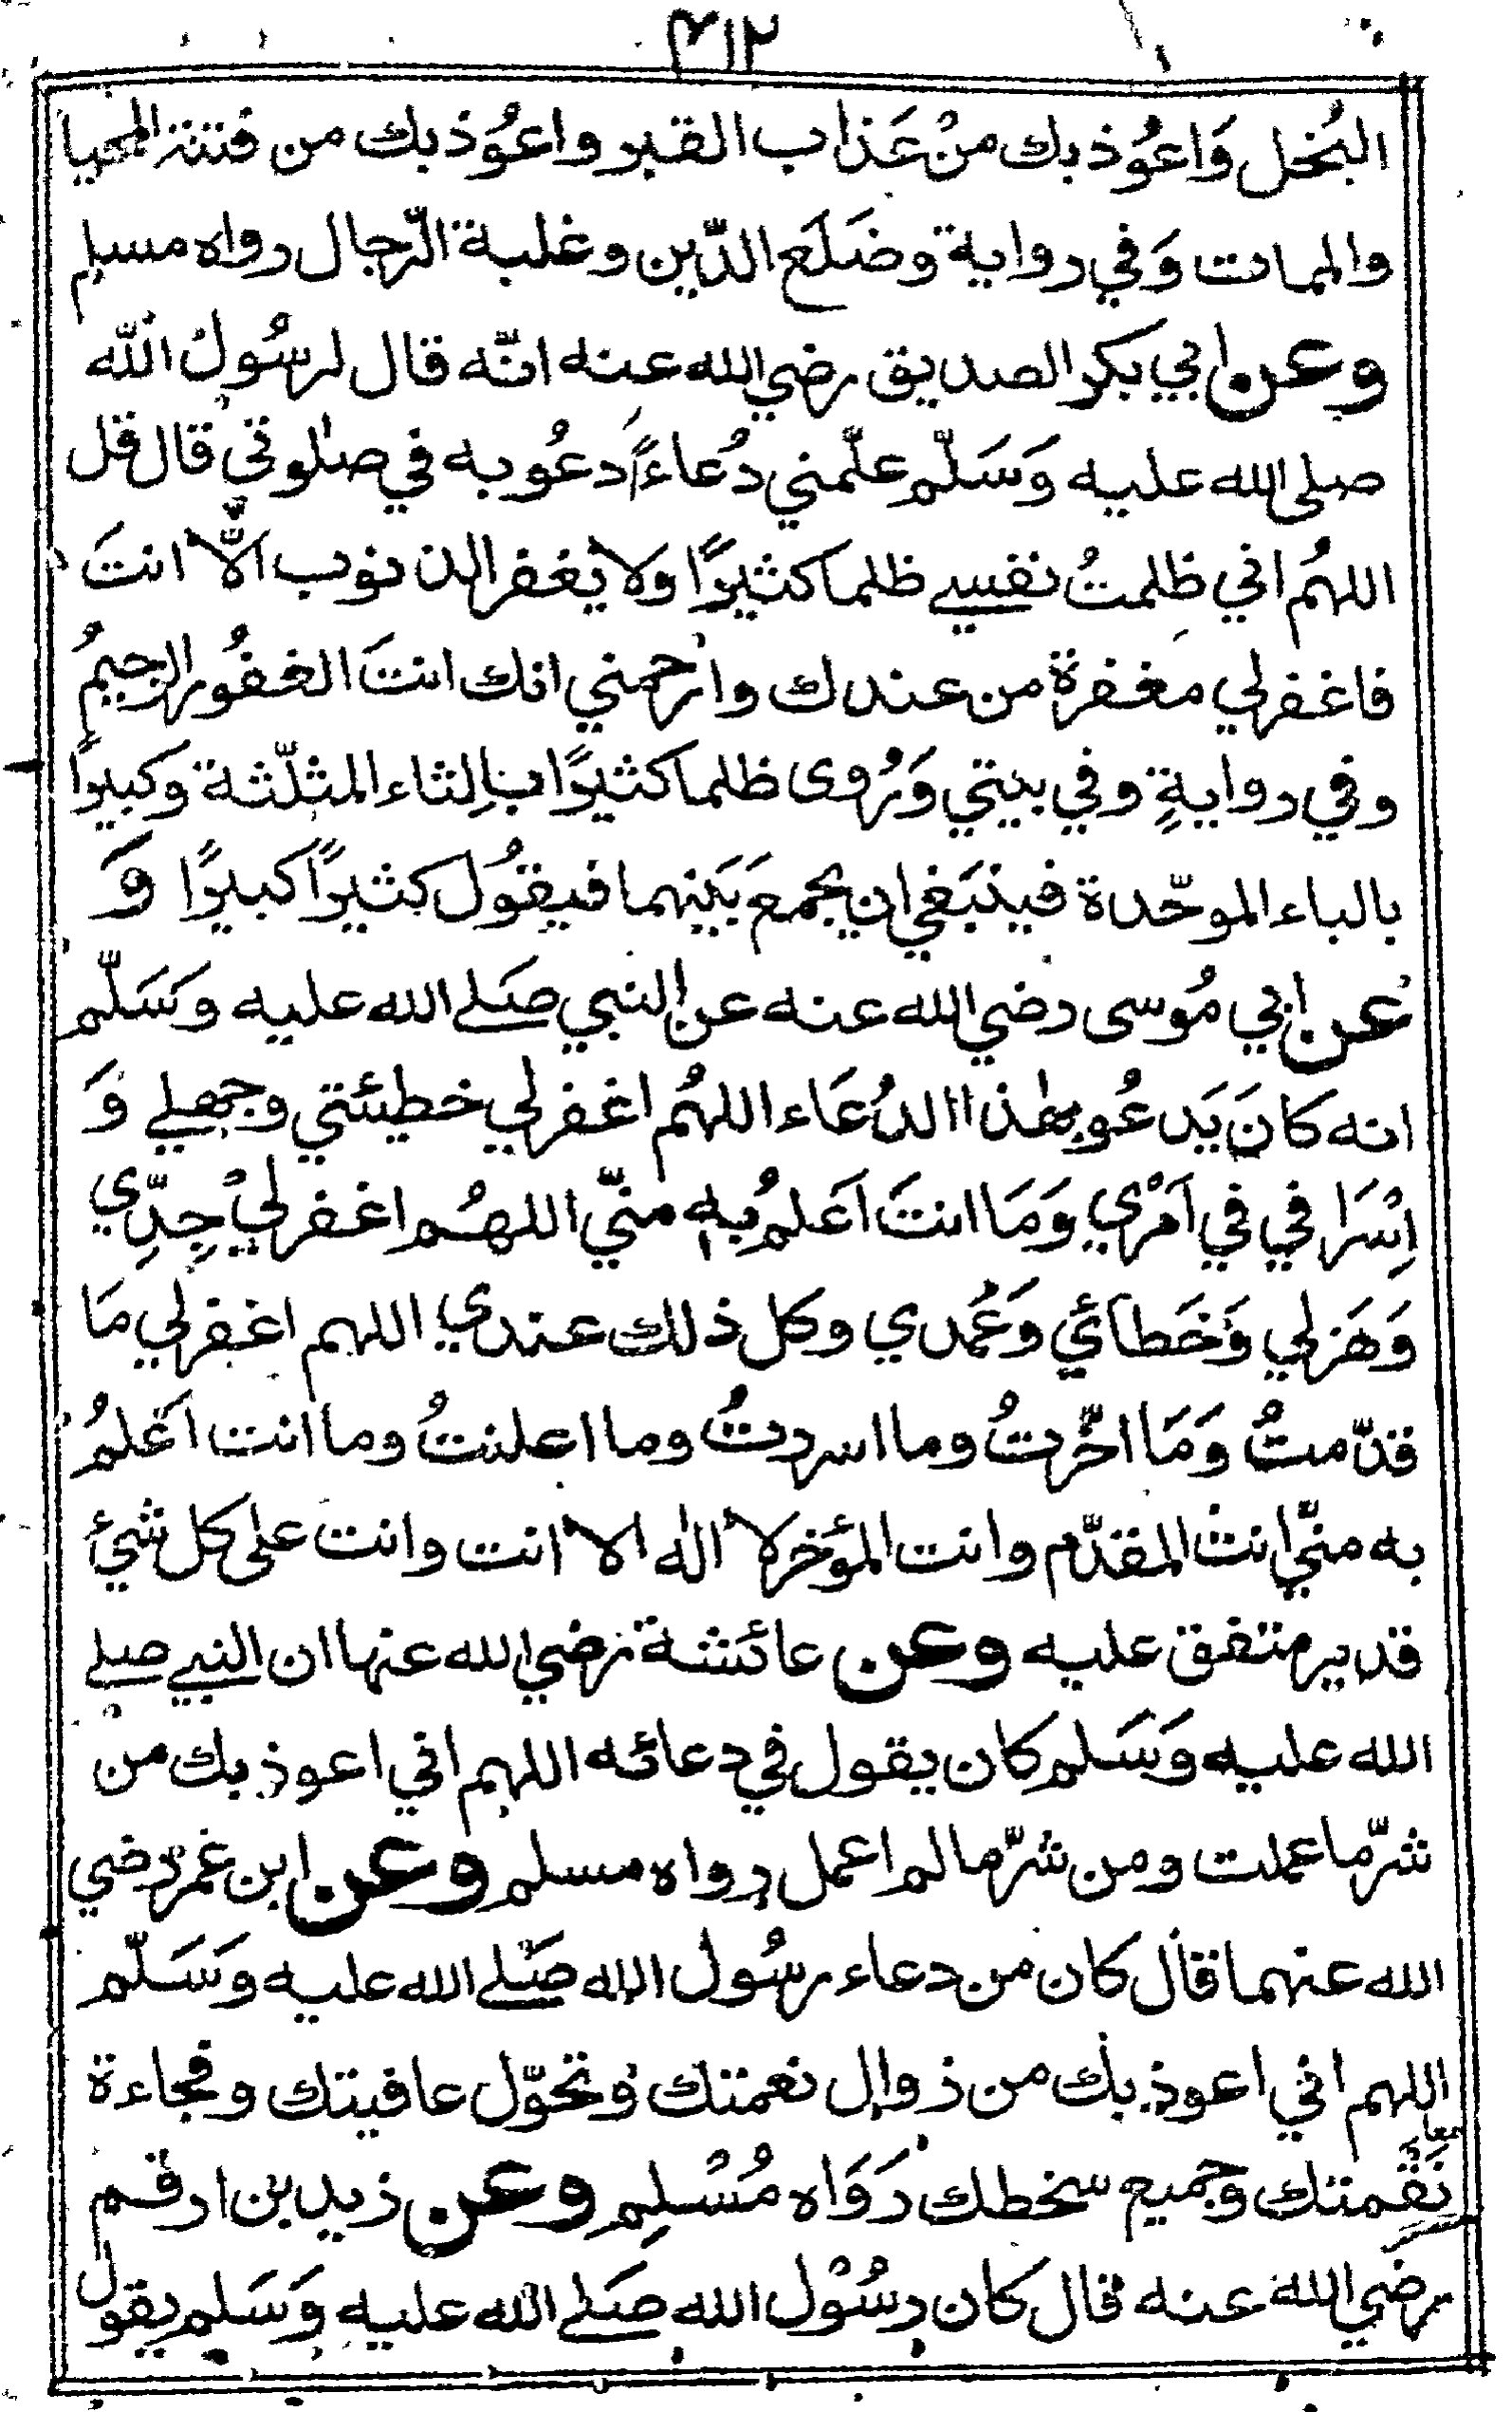 ٤١٢
البُخل وَاعوُذ بك منْ عَذاب القبر واعوُذ بك من فتنة المحيا
والممات وَفي رواية وضَلَع الدّين وغلبة الرّجال رواه مسلم
وعن ابي بكر الصديق رضي الله عنه انّه قال لرسُول الله
صلى الله عليه وَسَلّم علّمني دُعاءً ادعُو به في صلوتي قال قل
اللهُم اني ظلمتُ نفسي ظلما كثيرًا ولا يغفر الذنوب الّا انتَ
فاغفر لي مغفرة من عندك وارحمني انك انتَ الغفُور الرحيمُ
وفي روايةِ وفي بيتي وَرُوى ظلما كثيرًا بالِثاء المثلّثة وكبيرًا
بالباء الموحّدة فينبَغي ان يجمعَ بَينهما فيقوُل كثيرًا كبيرًا وَ
عن ابي مُوسى رضي الله عنه عن النبي صَلى الله عليه وَسَلّم
انه كانَ يَدعُو بهٰذا الدُعَاء اللهُم اغفر لي خطيئتي وجهلي وَ
اِسْرَافي في اَمْري وَمَا انتَ اَعَلمُ بِه منّي اللهُم اغفر لي جِدِّي
وَهَزلي وَخَطائي وَعَمدي وكل ذلك عندي اللهم اغفر لي مَا
قدّمتُ وَمَا اخّرتُ وما اسررتُ وما اعلنتُ وما انت اَعلمُ
به منّي انت المقدّم وانت المؤخر لا اله الا انت وانت على كل شيئ
قدير متفق عليه وعن عائشة رضي الله عنها ان النبي صلى
الله عليه وَسَلم كان يقول في دعائه اللهم اني اعوذ بك من
شرّ ما عملت ومن شرّ ما لم اعمل رواه مسلم وعن ابن عمَر رضي
الله عنهما قال كان من دعاء رسُول الله صَلى الله عليه وَسَلّم
اللهم اني اعوذ بك من زوال نعمتك وَتحوّل عافيتك وفجاءة
نَقِمتك وجميع سخطك رَوَاه مُسْلِم وعن زيد بن ارقم
رضي الله عنه قال كان رسُوْل الله صَلى الله عليه وَسَلم يقول